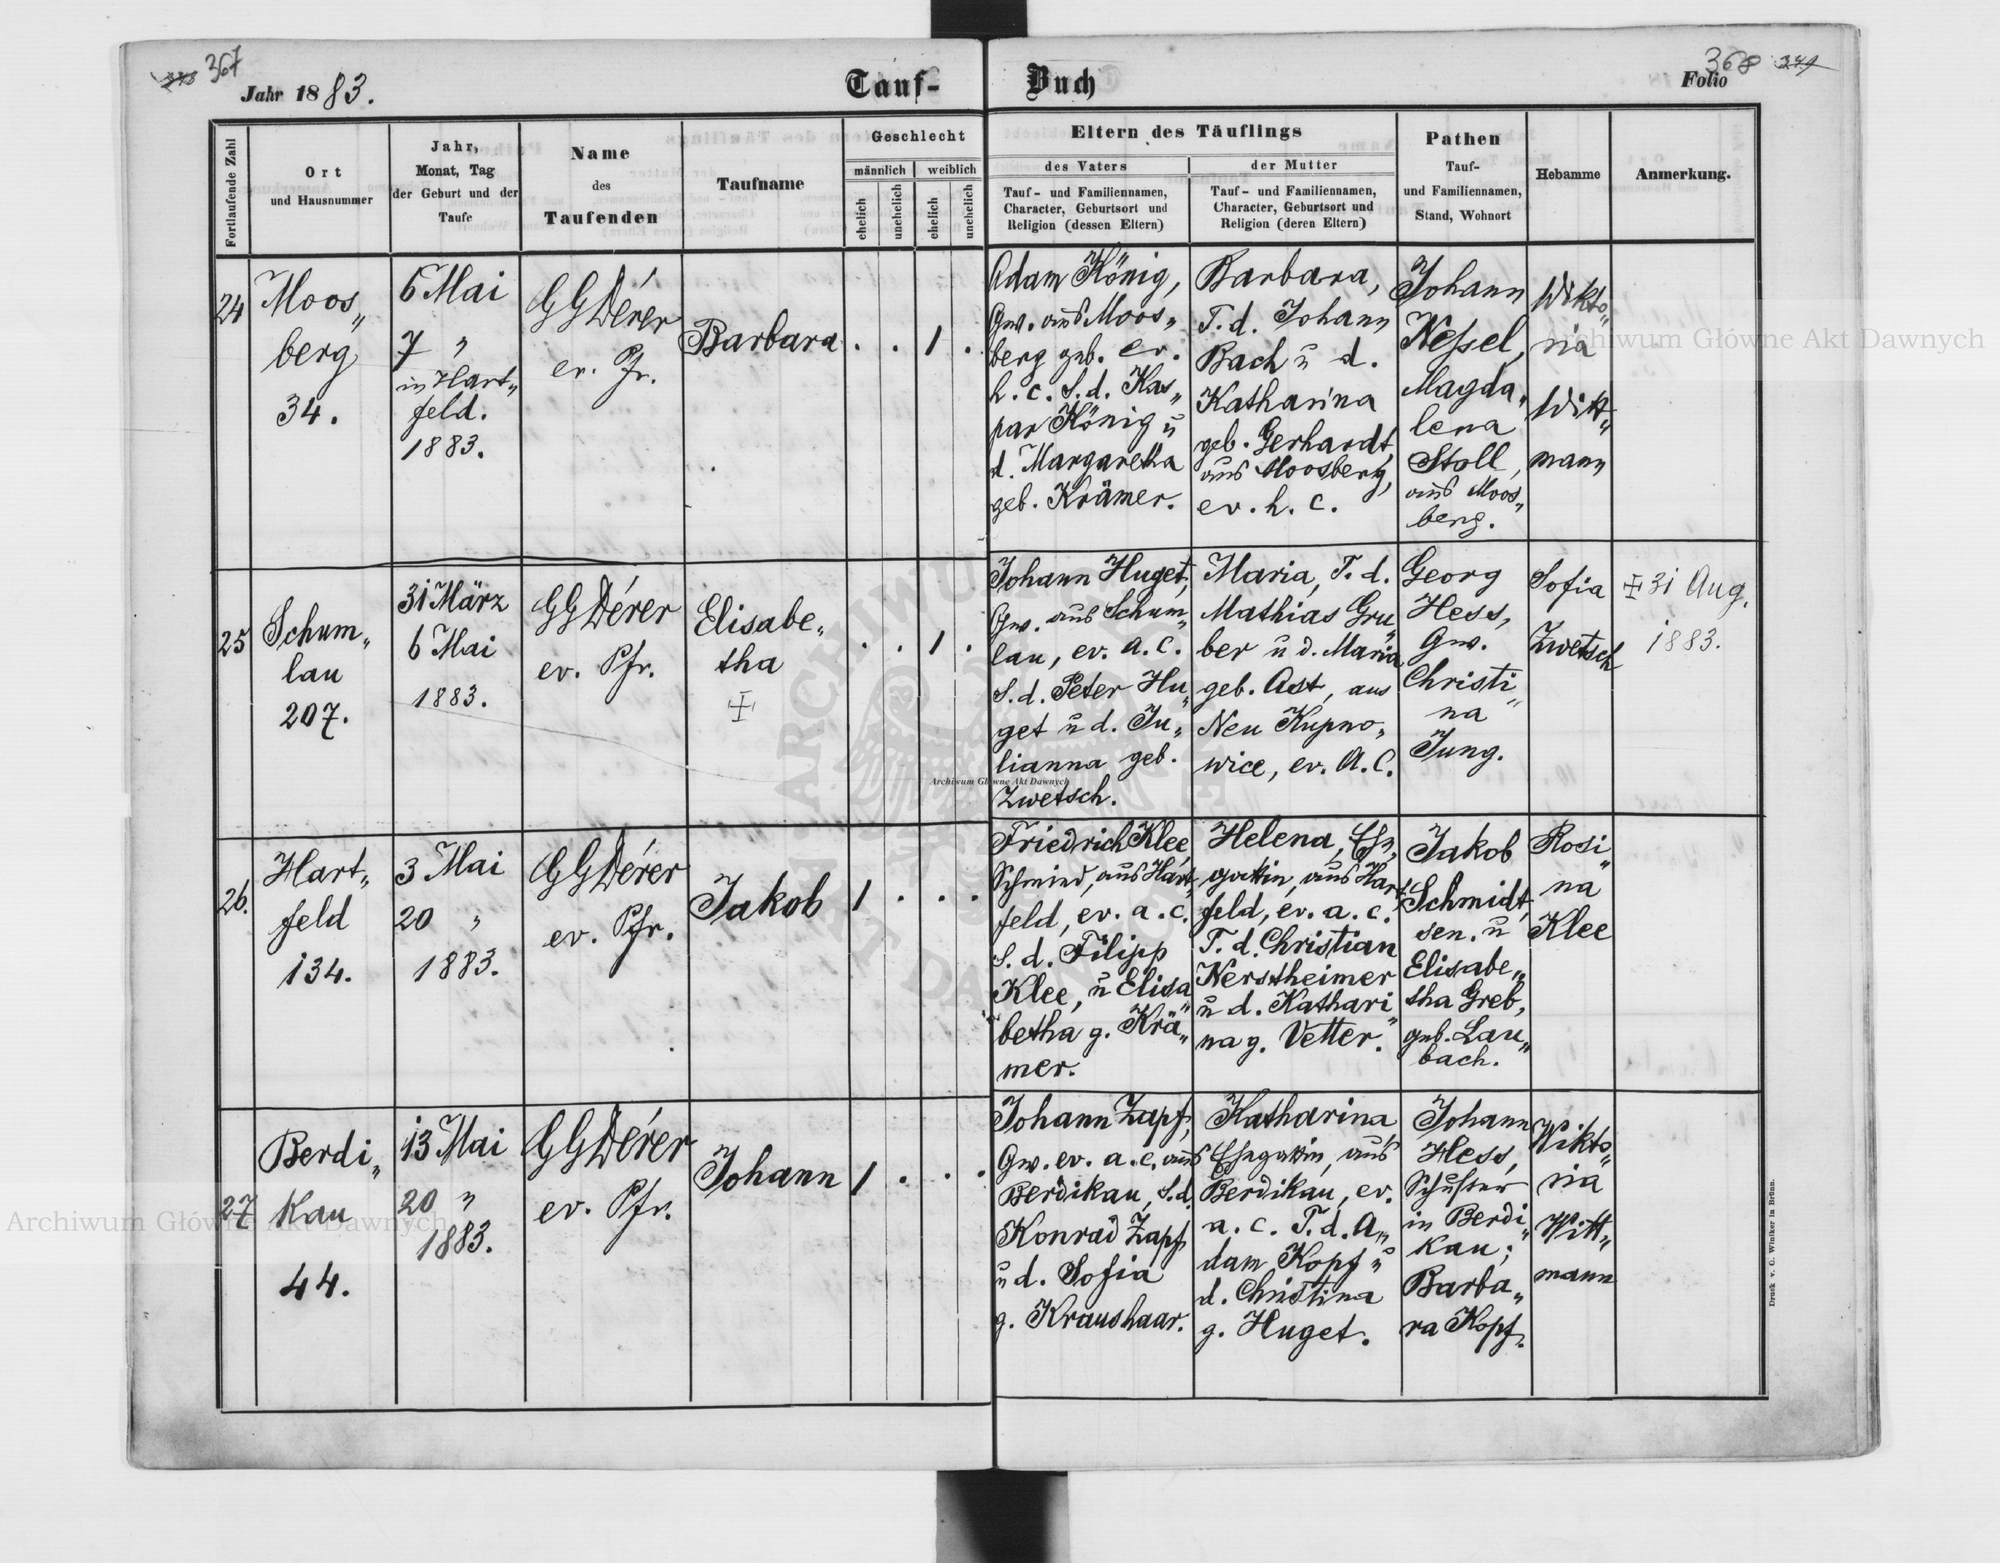 367
Jahr 1883.
Tauf-
Buch
368
Folio
Fortlaufende Zahl
Ort
und Hausnummer
Jahr,
Monat, Tag
der Geburt und der
Taufe
Name
des
Taufenden
Taufname
Geschlecht
männlich
weiblich
ehelich
unehelich
ehelich
unehelich
Eltern des Täuflings
des Vaters
Tauf- und Familiennamen,
Character, Geburtsort und
Religion (dessen Eltern)
der Mutter
Tauf- und Familiennamen,
Character, Geburtsort und
Religion (deren Eltern)
Pathen
Tauf-
und Familiennamen,
Stand, Wohnort
Hebamme
Anmerkung.
24
Moos„
berg
34.
6 Mai
7 „
in Hart„
feld.
1883.
GGDérer
ev. Pfr.
Barbara
. . 1 .
Adam König,
Gw. aus Moos„
berg geb. ev.
h. c. S. d. Kas„
par König u
d. Margaretha
geb. Krämer.
Barbara,
T. d. Johann
Bach u d.
Katharina
geb. Gerhardt,
aus Moosberg,
ev. h. c.
Johann
Neßel,
Magda„
lena
Stoll,
aus Moos„
berg.
Wikto„
ria
Witt„
mann
25
Schum„
lau
207.
31 März
6 Mai
1883.
GGDérer
ev. Pfr.
Elisabe„
tha
. . 1 .
Johann Huget,
Gw. aus Schum„
lau, ev. A. C.
S. d. Peter Hu„
get u d. Ju„
lianna geb.
Zwetsch.
Maria, T. d.
Mathias Gru„
ber u d. Maria
geb. Ast, aus
Neu Kupno„
wice, ev. A. C.
Georg
Hess,
Gw.
Christi„
na
Jung.
Sofia
Zwetsch
31 Aug.
1883.
26.
Hart„
feld
134.
3 Mai
20 „
1883.
GGDérer
ev. Pfr.
Jakob
1 . . .
Friedrich Klee,
Schmied, aus Hart„
feld, ev. a. c.
S. d. Filipp
Klee, u Elisa„
betha g. Krä„
mer.
Helena, Ehe„
gattin, aus Hart„
feld, ev. a. c.
T. d. Christian
Nerstheimer
u d. Kathari„
na g. Vetter.
Jakob
Schmidt,
sen. u
Elisabe„
tha Greb,
geb. Lau„
bach.
Rosi„
na
Klee
27
Berdi„
kau
44.
13 Mai
20 „
1883.
GGDérer
ev. Pfr.
Johann
1 . . .
Johann Zapf,
Gw. ev. a. c. aus
Berdikau, S. d.
Konrad Zapf
u d. Sofia
g. Kraushaar.
Katharina
Ehegattin, aus
Berdikau, ev.
a. c. T. d. A„
dam Kopf u
d. Christina
g. Huget.
Johann
Hess,
Schuster
in Berdi„
kau;
Barba„
ra Kopf.
Wikto„
ria
Witt„
mann
Druck v. C. Winiker in Brünn.
Archiwum Główne Akt Dawnych
Archiwum Główne Akt Dawnych
Archiwum Główne Akt Dawnych